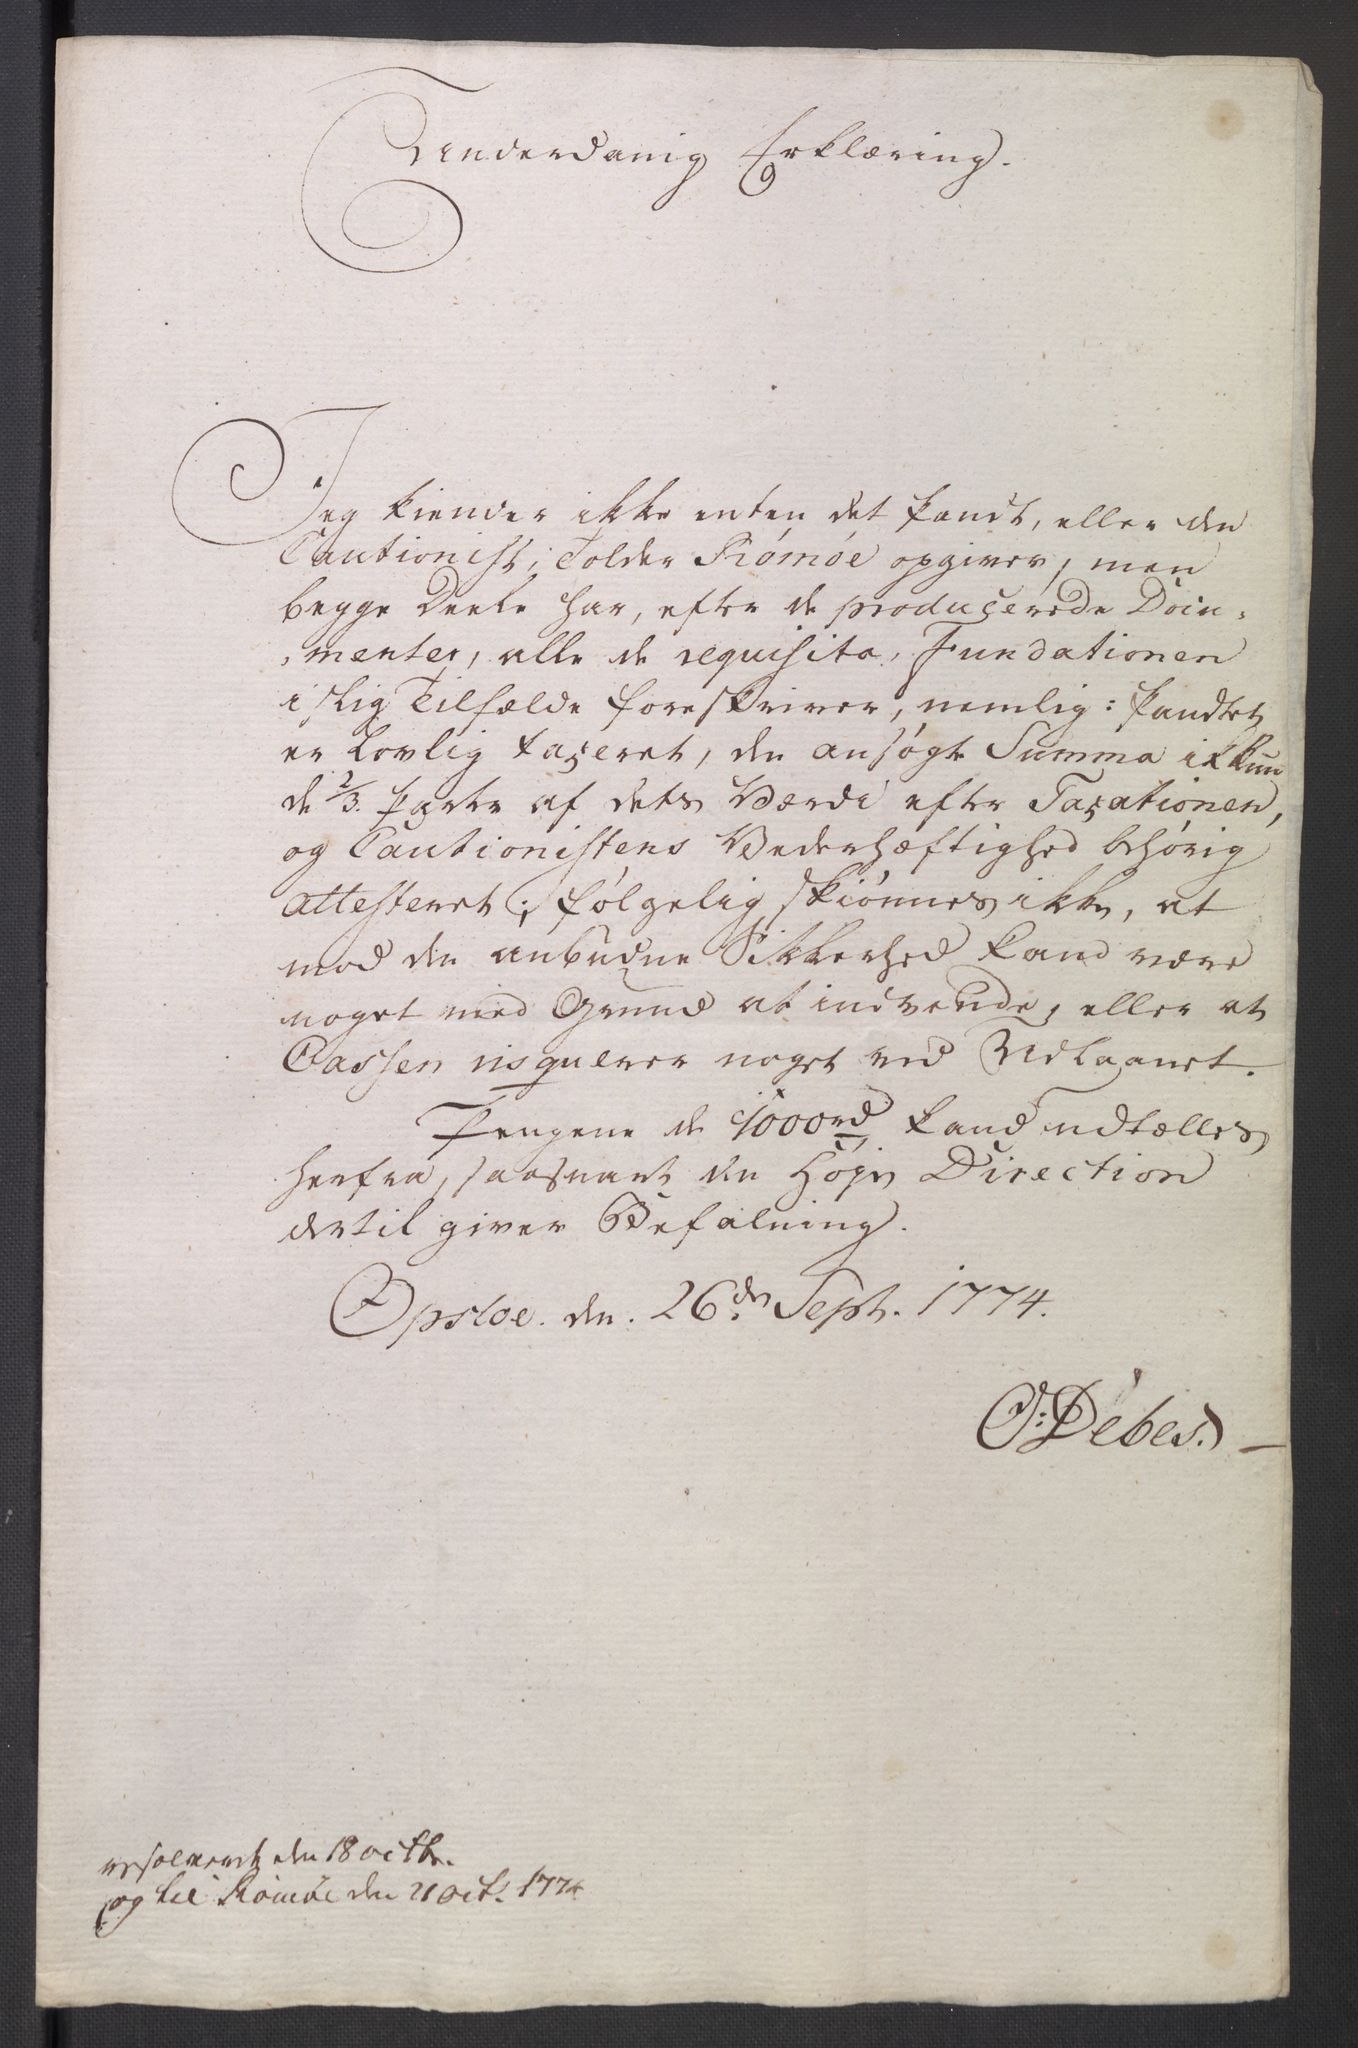 Underdanig Erklæring.
Jeg kiender ikke enten det Pandt, eller den
Cautionist, Tolder Rømøe opgiver, men
begge Deele har, efter de producerede Docu-
-menter, alle de requisita, Fundationen
i slig Tilfælde foreskriver, nemlig: Pandtet
er Lovlig taxeret, den ansøgte Summa ikkun
de 2/3. Parte af dets Værdi efter Taxationen,
og Cautionistens Vederhæftighed behørig
attesteret; følgelig skiønnes ikke, at
mod den anbudne Sikkerhed kand være
noget med Grund at indvende, eller at
Cassen risquerer noget ved Udlaanet.
Pengene de 1000 rd kand udtælles
herfra, saasnart den Høje Direction
dertil giver Befalning.
Opsloe. den. 26de Sept. 1774.
O: Debes.
resolveret den 18 octbr.
og til Rømøe den 21 Oct. 1774